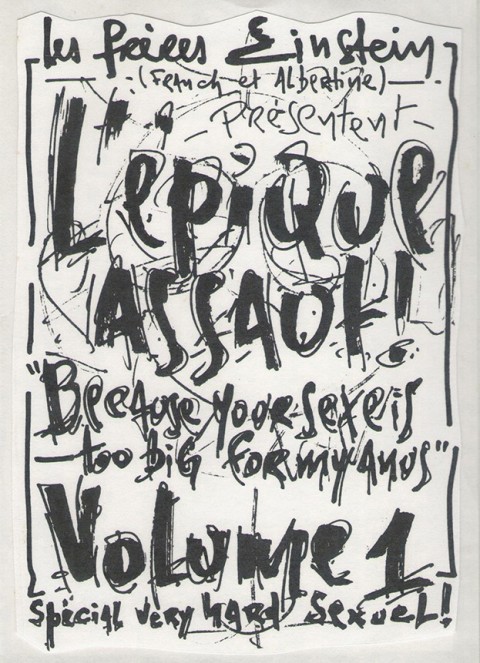 les frères Einstein
(Franck et Albertine)
Présentent
L'épique
ASSAUt!
"Because your sexe is
too big for my anus"
Volume 1
spécial very hard sexuel!